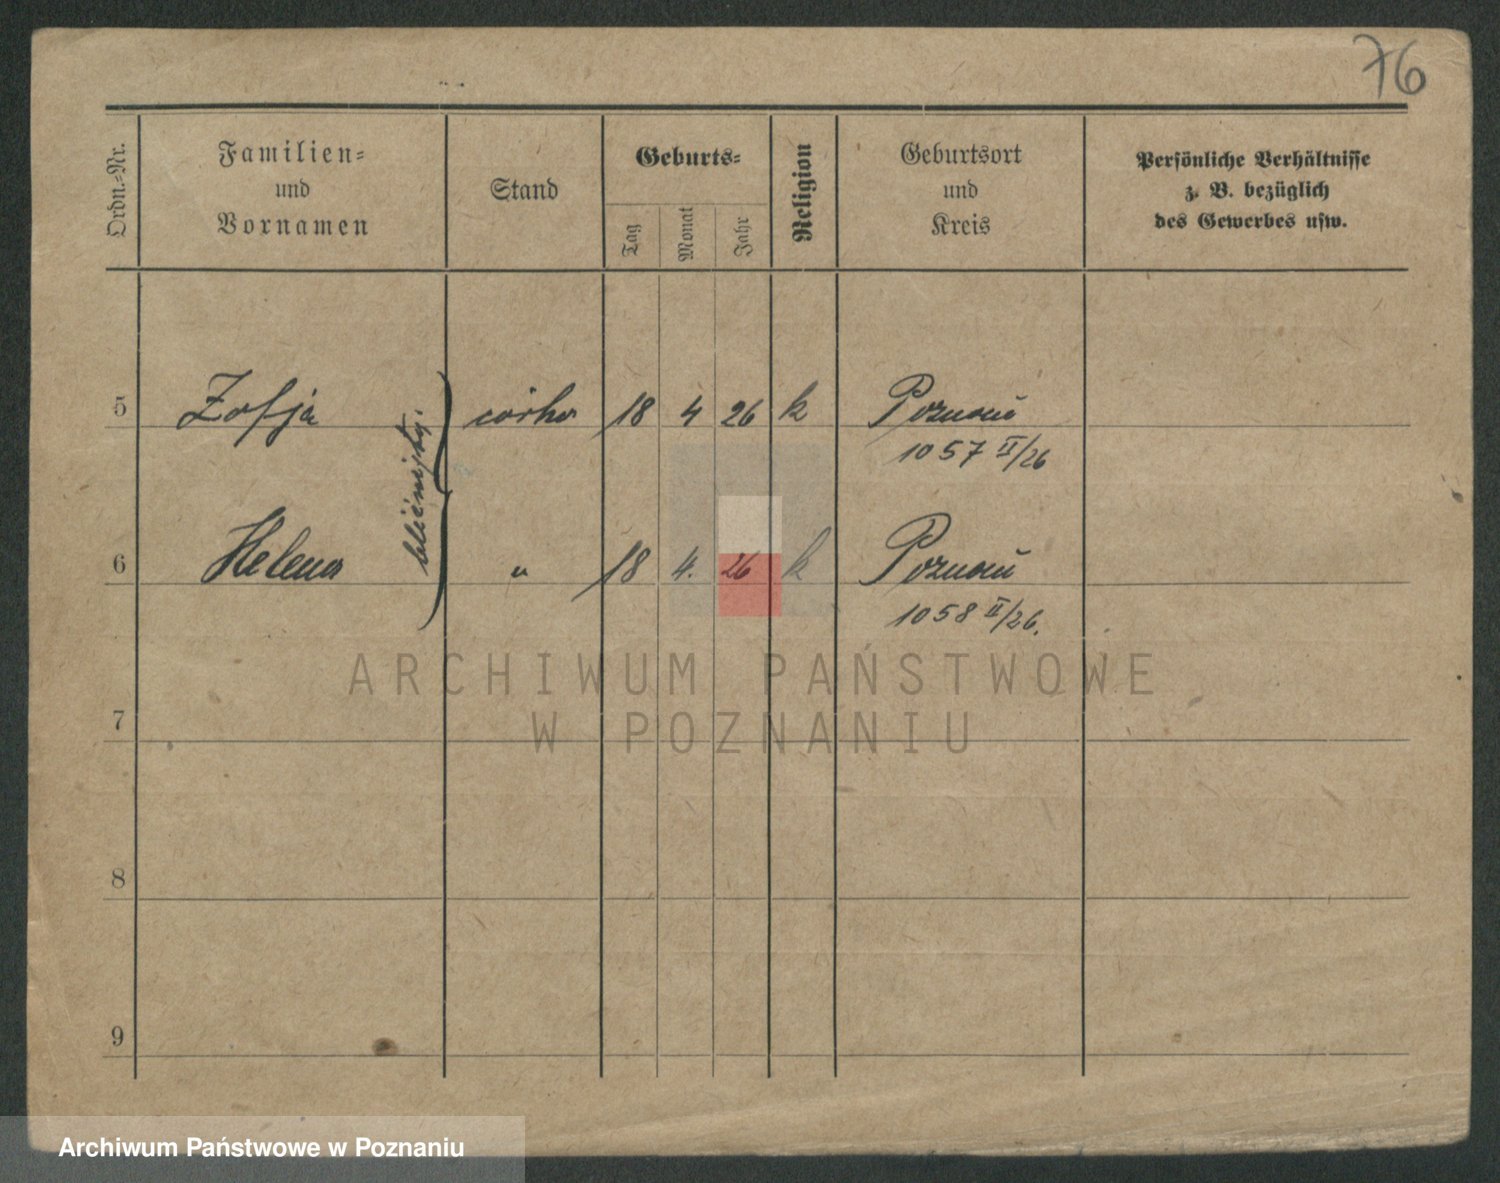 76
Ordn.-Nr.
Familien-
und
Vornamen
Stand
Geburts-
Tag
Monat
Jahr
Religion
Geburtsort
und
Kreis
Persönliche Verhältnisse
z. B. bezüglich
des Gewerbes usw.
5 Zofja córka 18 4 26 k Poznań
1057 II/26
bliźnięta
6 Helena " 18 4. 26 k Poznań
1058 II/26.
7
8
9
ARCHIWUM PAŃSTWOWE
W POZNANIU
Archiwum Państwowe w Poznaniu